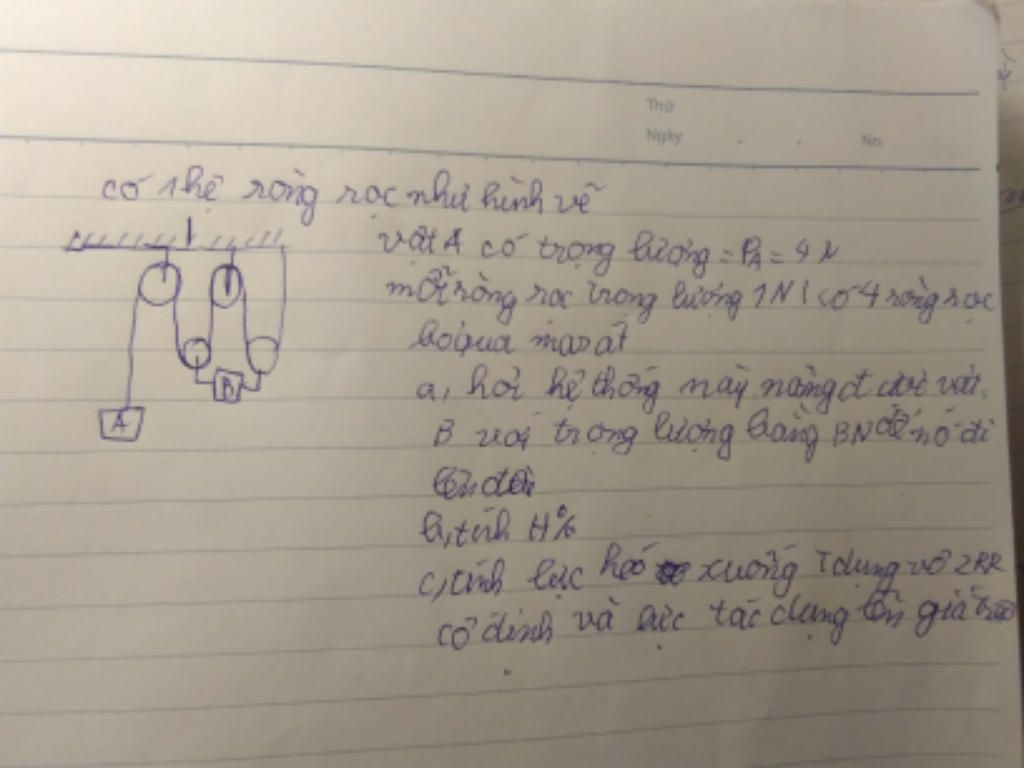 Thứ
Ngày No.
có 1 hệ ròng rọc như hình vẽ
vật A có trọng lượng = PA = 4 N
mỗi ròng rọc trọng lượng 1N ( có 4 ròng rọc
bỏ qua ma sát
a, hỏi hệ thống này nâng được vật
B với trọng lượng bằng BN để nó đi
lên đều
b, tính H%
c, tính lực kéo xuống tdụng vô 2RR
cố định và lực tác dụng lên giá
A
B